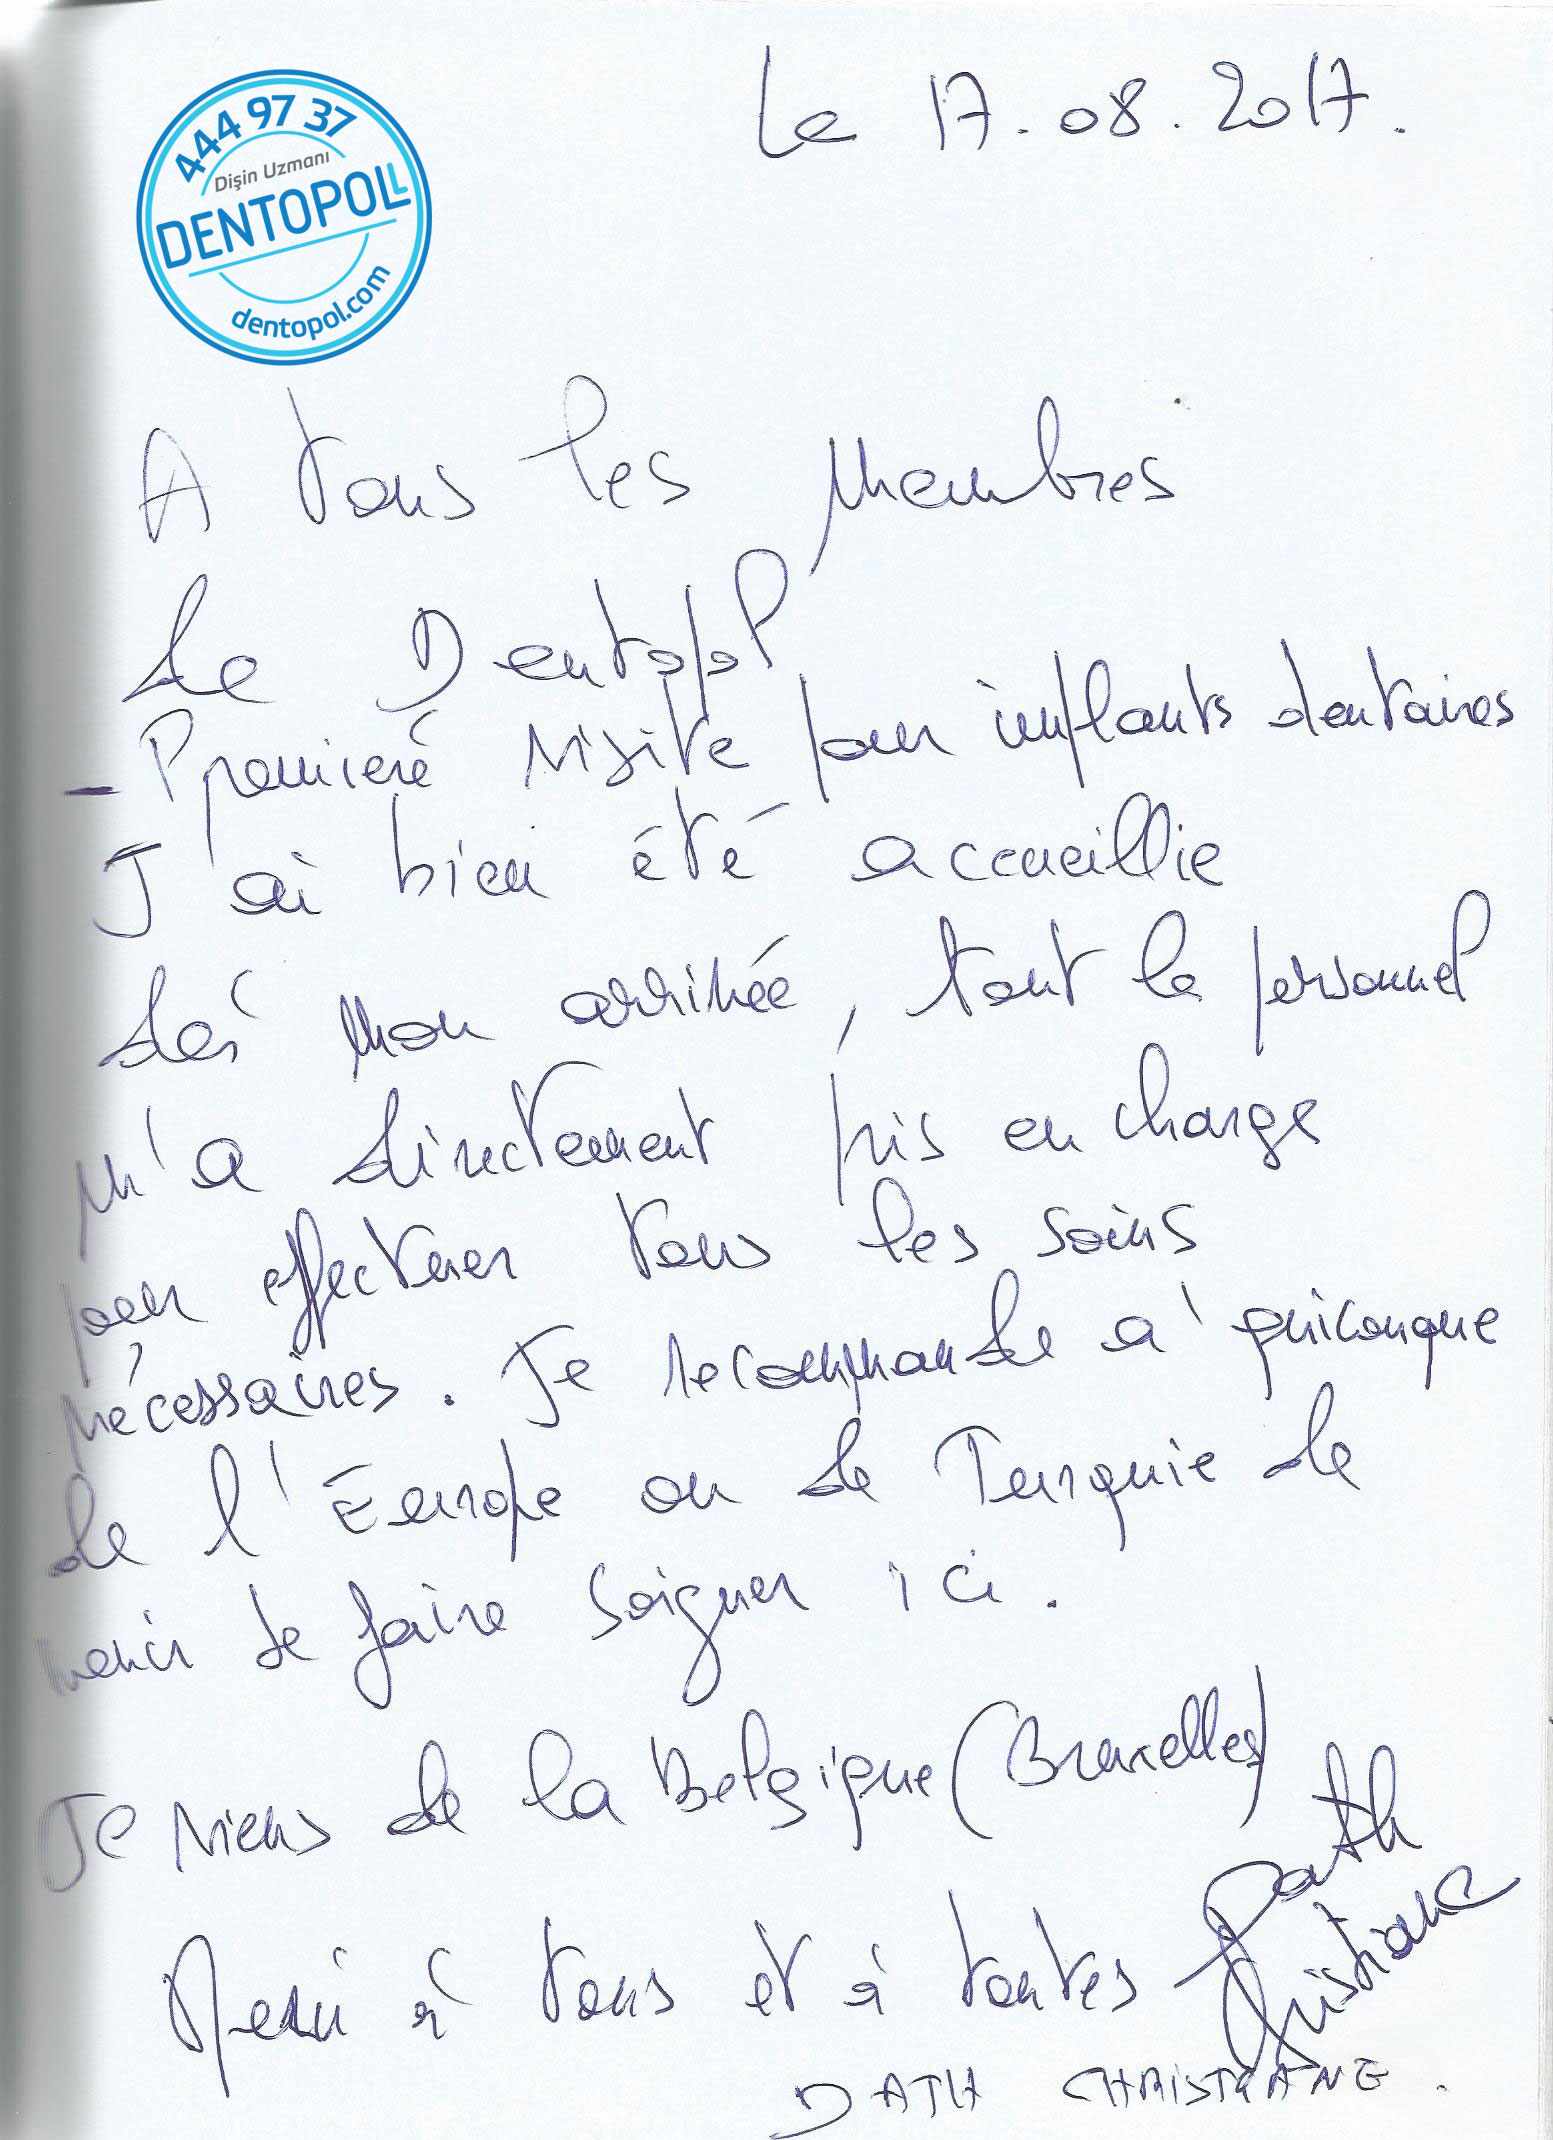 444 97 37
Dişin Uzmanı
DENTOPOL
dentopol.com
Le 17.08.2017.
A tous les Membres
de Dentopol
- Premieré visite pour implants dentaires
J'ai bien été accueillie
dés mon arrivée, tout le personnel
m'a directement pris en charge
pour effectuer tous les soins
nécessaires. Je recommande a' quiconque
de l'Europe ou de Turquie de
venir se faire soigner ici.
Je viens de la Belgique (Bruxelles)
Merci à tous et à toutes
Dath
Christiane
DATH CHRISTIANE.